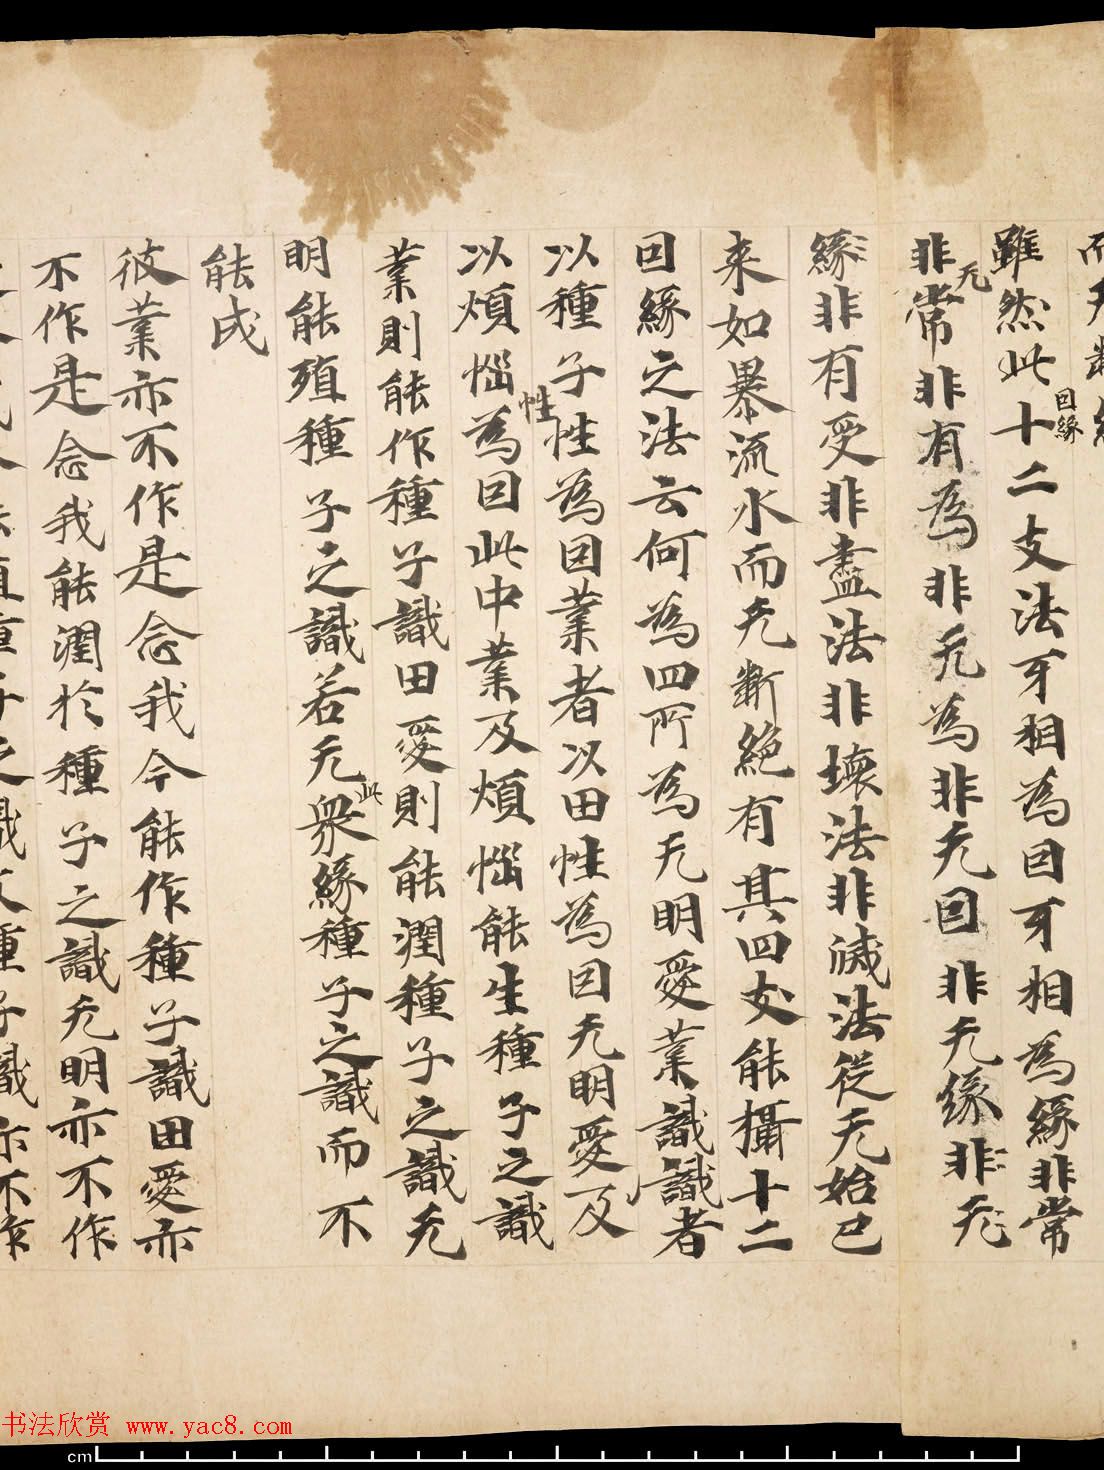 而无斷絕
雖然此十二因緣支法互相為因互相為緣非常
非无常非有為非无為非无因非无緣非无
緣非有受非盡法非壞法非滅法從无始已
来如暴流水而无斷絕有其四支能攝十二
因緣之法云何為四所為无明愛業識識者
以種子性為因業者以田性為因无明愛及
以煩惱性為因此中業及煩惱能生種子之識
業則能作種子識田愛則能潤種子之識无
明能殖種子之識若无此衆緣種子之識而不
能成
彼業亦不作是念我今能作種子識田愛亦
不作是念我能潤於種子之識无明亦不作
種子之識 種子識亦不作
书法欣赏 www.yac8.com
cm